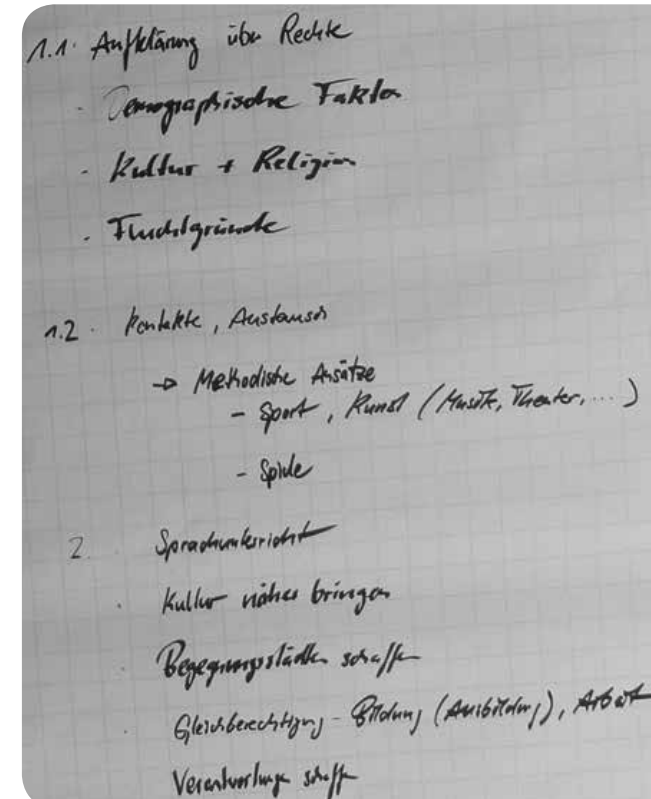 1.1. Aufklärung über Rechte
- Demographische Faktor
- Kultur + Religion
- Fluchtgründe
1.2. Kontakte, Austausch
→ Methodische Ansätze
- Sport, Kunst (Musik, Theater, ...)
- Spiele
2. Sprachunterricht
. Kultur näher bringen
. Begegnungsstädten schaffen
Gleichberechtigung - Bildung (Ausbildung), Arbeit
Verantwortung schaffen